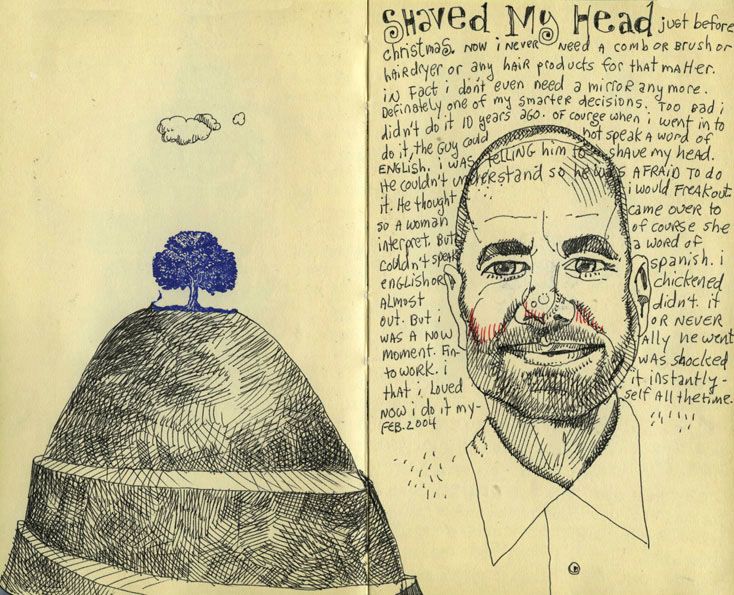 Shaved My Head just before
christmas. Now i never need a comb or brush or
hairdryer or any hair products for that matter.
in fact i don't even need a mirror anymore.
Definately one of my smarter decisions. Too bad i
didn't do it 10 years ago. of course when i went in to
do it, the guy could not speak a word of
English. i was telling him to shave my head.
He couldn't understand so he was afraid to do
it. He thought i would freakout.
so a woman came over to
interpret. But of course she
couldn't speak a word of
english or spanish. i
Almost chickened
out. But i didn't. it
was a now or never
moment. Fin- ally he went
to work. i was shocked
that i loved it instantly-
now i do it my- self all the time.
Feb. 2004